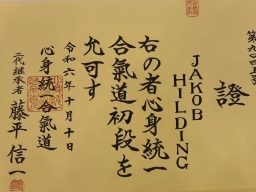 證
JAKOB
HILDING
右の者心身統一
合氣道初段を
允可す
令和六年十月十日
心身統一合氣道
二代継承者 藤平信一